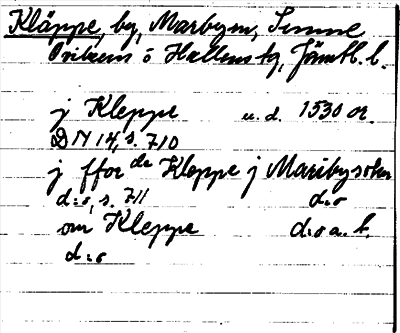 Kläppe, by, Marbyn, Sunne
Ovikens o Hallens tg, Jämtl. l.
j Kleppe u. d. 1530 or.
DN 14, s. 710
j ffor de Kleppe j Maribysokn
d:o, s. 711 d:o
om Kleppe d:o a. b.
d:o